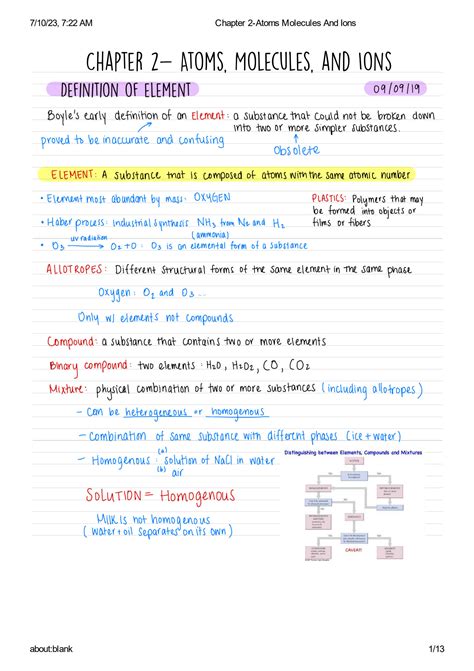 7/10/23, 7:22 AM
Chapter 2-Atoms Molecules And Ions
CHAPTER 2- ATOMS, MOLECULES, AND IONS
DEFINITION OF ELEMENT
09/09/19
Boyle's early definition of an Element: a substance that could not be broken down
into two or more simpler substances.
proved to be inaccurate and confusing
Obsolete
ELEMENT: A substance that is composed of atoms with the same atomic number
• Element most abundant by mass: OXYGEN
PLASTICS: Polymers that may
be formed into objects or
films or fibers
• Haber process: industrial synthesis NH₃ from N₂ and H₂
(ammonia)
uv radiation
• O₃ → O₂ + O : O₃ is an elemental form of a substance
ALLOTROPES: Different structural forms of the same element in the same phase
Oxygen: O₂ and O₃ ...
Only w/ elements not compounds
Compound: a substance that contains two or more elements
Binary compound: two elements: H₂O, H₂O₂, CO, CO₂
Mixture: physical combination of two or more substances (including allotropes)
- Can be heterogeneous or homogenous
- Combination of same substance with different phases (ice + water)
- Homogenous: (a) solution of NaCl in water
(b) air
Distinguishing between Elements, Compounds and Mixtures
SOLUTION = Homogenous
Milk is not homogenous
(water + oil separates on its own)
CAVEAT!
about:blank
1/13